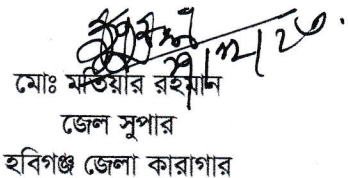 মোঃ মতিয়ার রহমান
জেল সুপার
হবিগঞ্জ জেলা কারাগার